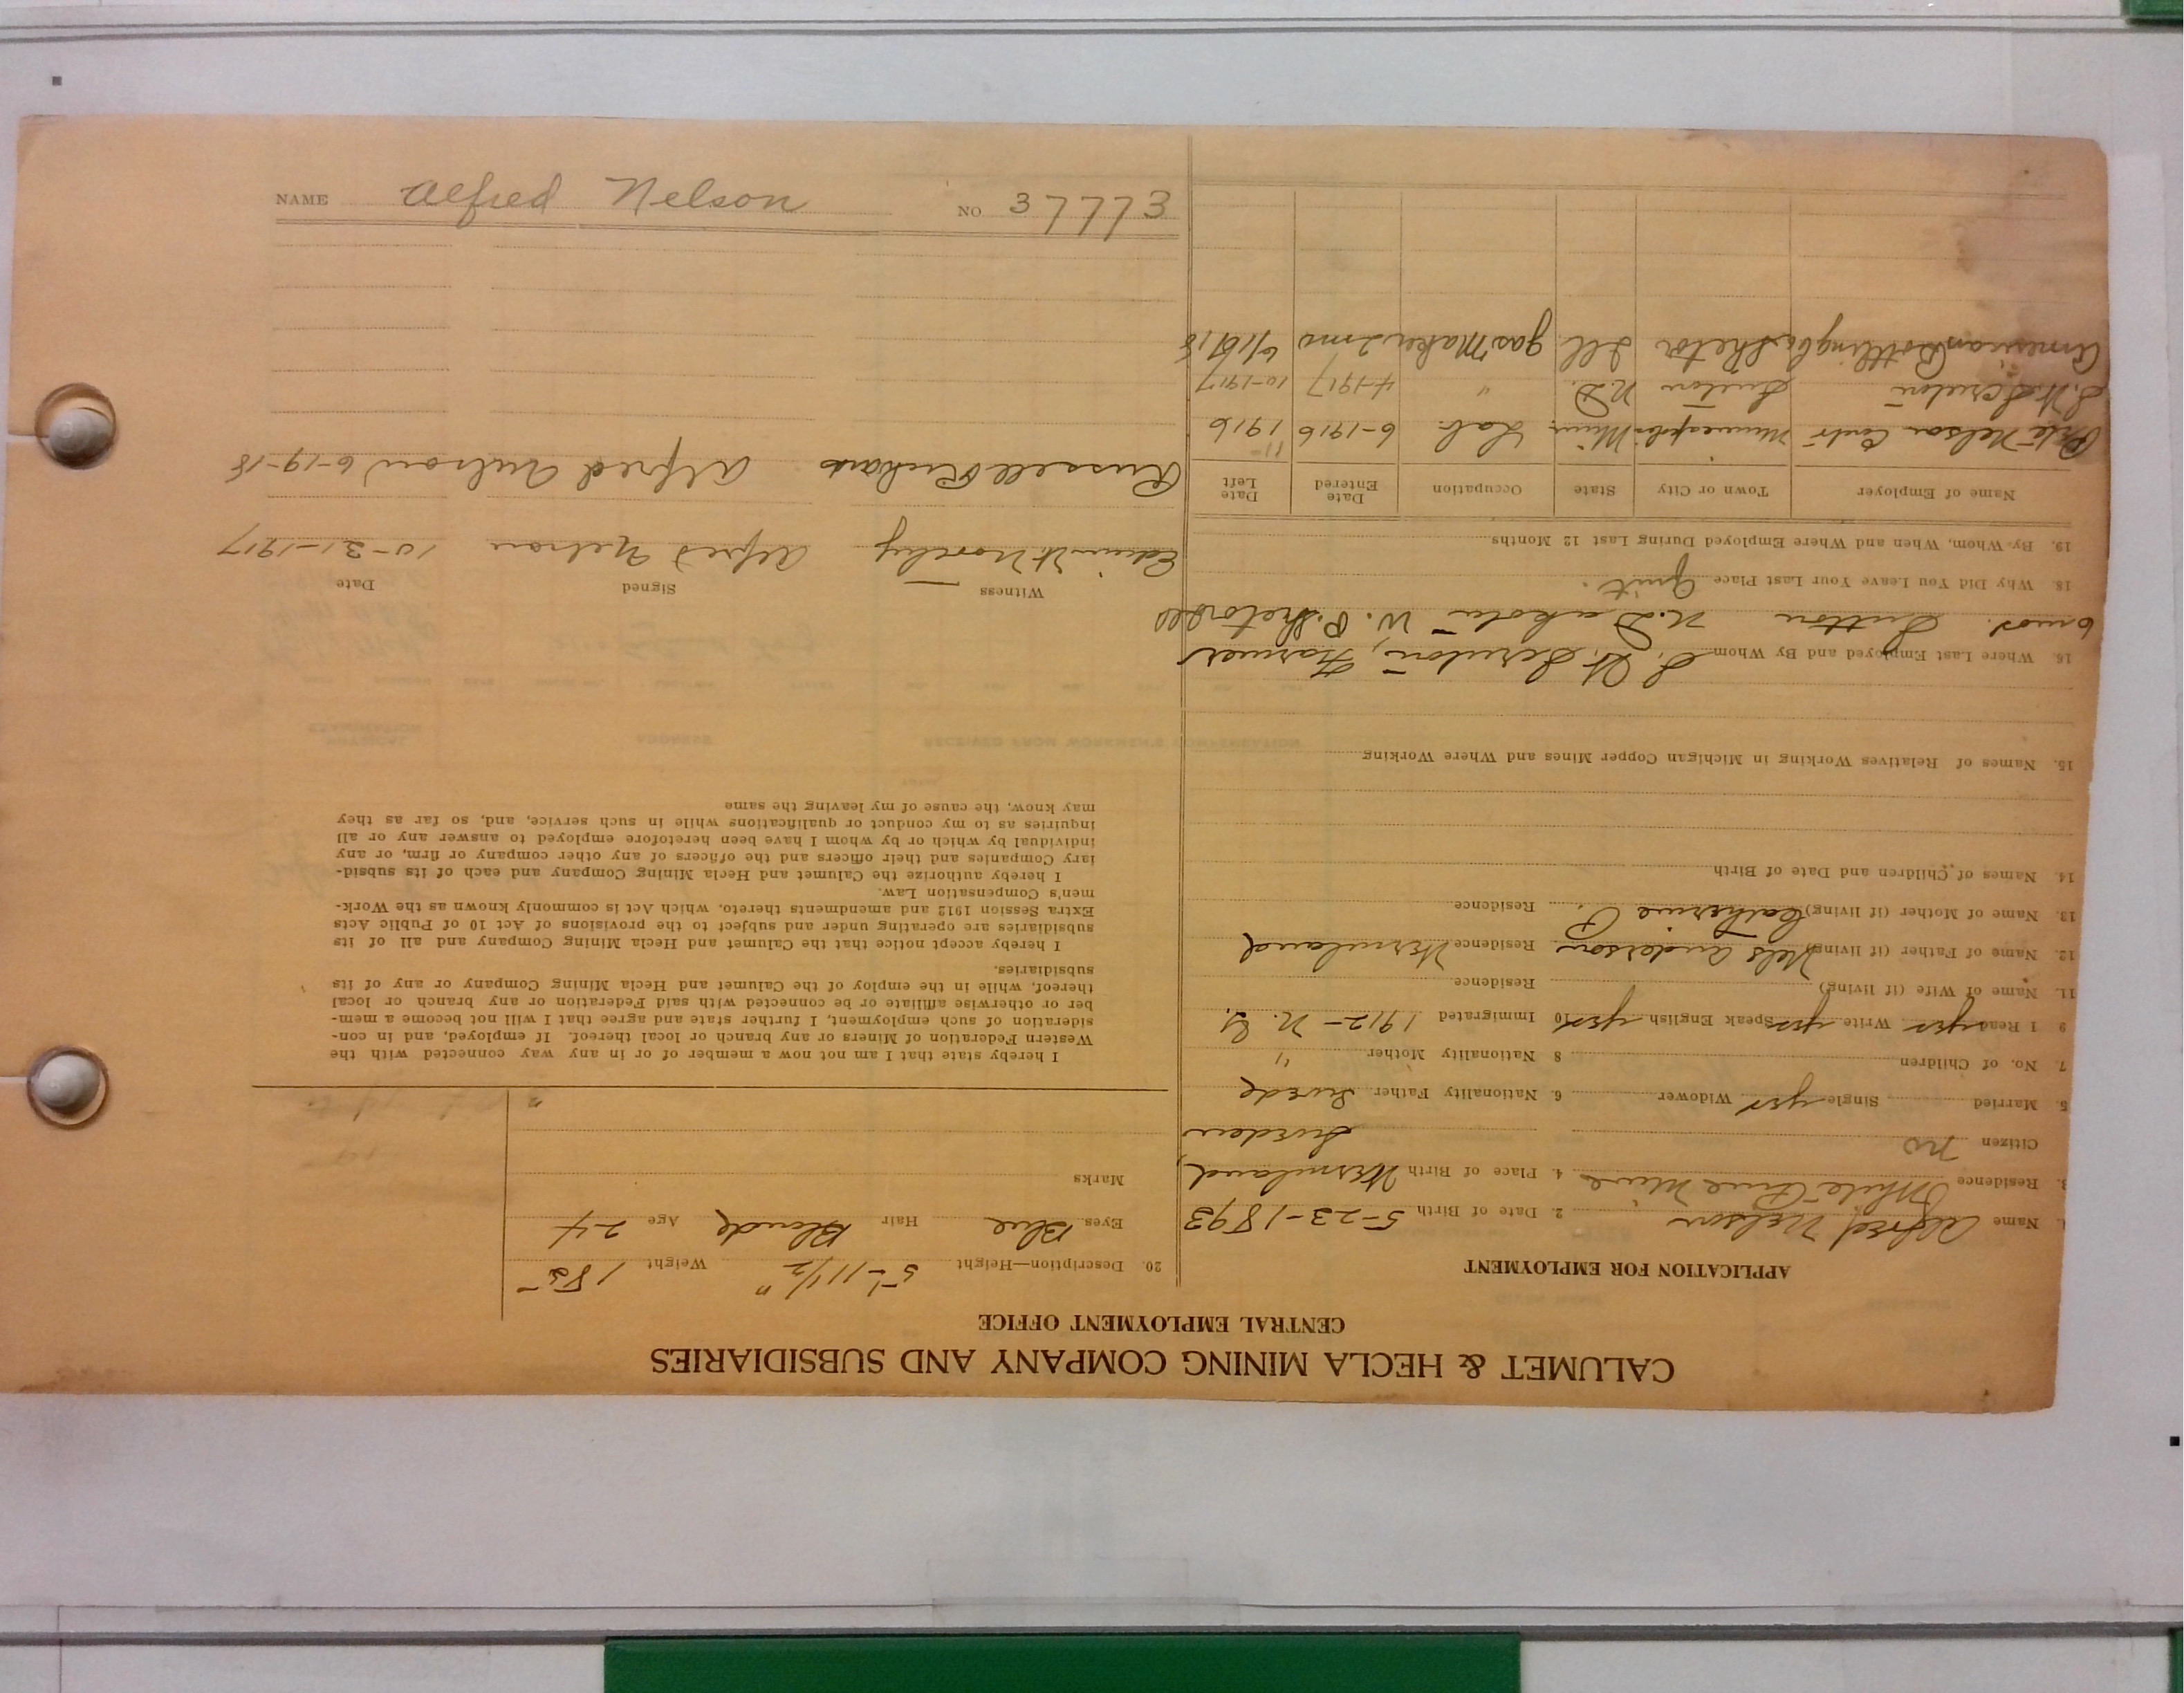 CALUMET & HECLA MINING COMPANY AND SUBSIDIARIES
CENTRAL EMPLOYMENT OFFICE
APPLICATION FOR EMPLOYMENT
1. Name Alfred Nelson 2. Date of Birth 5-23-1893
3. Residence White Pine Mine 4. Place of Birth Wermland,
Citizen no Sweden
5. Married Single yes Widower 6. Nationality Father Swede
7 No. of Children 8 Nationality Mother "
9 I Read yes Write yes Speak English yes 10 Immigrated 1912- N. Y.
11. Name of Wife (if living) Residence
12. Name of Father (if living) Nels Anderson Residence Wermland
13. Name of Mother (if living) Catherine P. Residence
14. Names of Children and Date of Birth
15. Names of Relatives Working in Michigan Copper Mines and Where Working
16. Where Last Employed and By Whom Farmer
6 mos. Sutton N. Dakota
18. Why Did You Leave Your Last Place Quit.
19. By Whom, When and Where Employed During Last 12 Months
Name of Employer Town or City State Occupation Date Entered Date Left
Pete Nelson Contr Minneapolis Minn Lab. 6-1916 11-1916
Sutton N.D. " 4-1917 10-1917
American Bottling Co Ill. gas Maker 2 mo 6/16/18
20. Description—Height 5'-11 1/2" Weight 185
Eyes Blue Hair Blonde Age 24
Marks
I hereby state that I am not now a member of or in any way connected with the
Western Federation of Miners or any branch or local thereof. If employed, and in con-
sideration of such employment, I further state and agree that I will not become a mem-
ber or otherwise affiliate or be connected with said Federation or any branch or local
thereof, while in the employ of the Calumet and Hecla Mining Company or any of its
subsidiaries.
I hereby accept notice that the Calumet and Hecla Mining Company and all of its
subsidiaries are operating under and subject to the provisions of Act 10 of Public Acts
Extra Session 1912 and amendments thereto, which Act is commonly known as the Work-
men's Compensation Law.
I hereby authorize the Calumet and Hecla Mining Company and each of its subsid-
iary Companies and their officers and the officers of any other company or firm, or any
individual by which or by whom I have been heretofore employed to answer any or all
inquiries as to my conduct or qualifications while in such service, and, so far as they
may know, the cause of my leaving the same
Witness Signed Date
Alfred Nelson 10-31-1917
Russell Alfred Nelson 6-19-18
NAME Alfred Nelson NO 37773